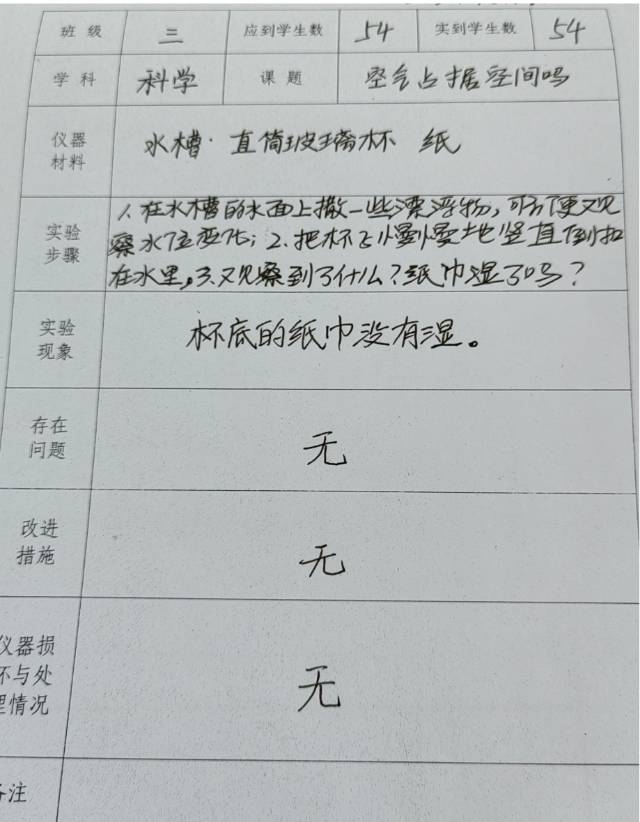 班级 三 应到学生数 54 实到学生数 54
学科 科学 课题 空气占据空间吗
仪器材料 水槽· 直筒玻璃杯 纸
实验步骤
1.在水槽的水面上撒一些漂浮物,可方便观
察水位变化;2.把杯子慢慢地竖直倒扣
在水里。3.观察到了什么?纸巾湿了吗?
实验现象 杯底的纸巾没有湿。
存在问题 无
改进措施 无
仪器损
坏与处
理情况 无
备注